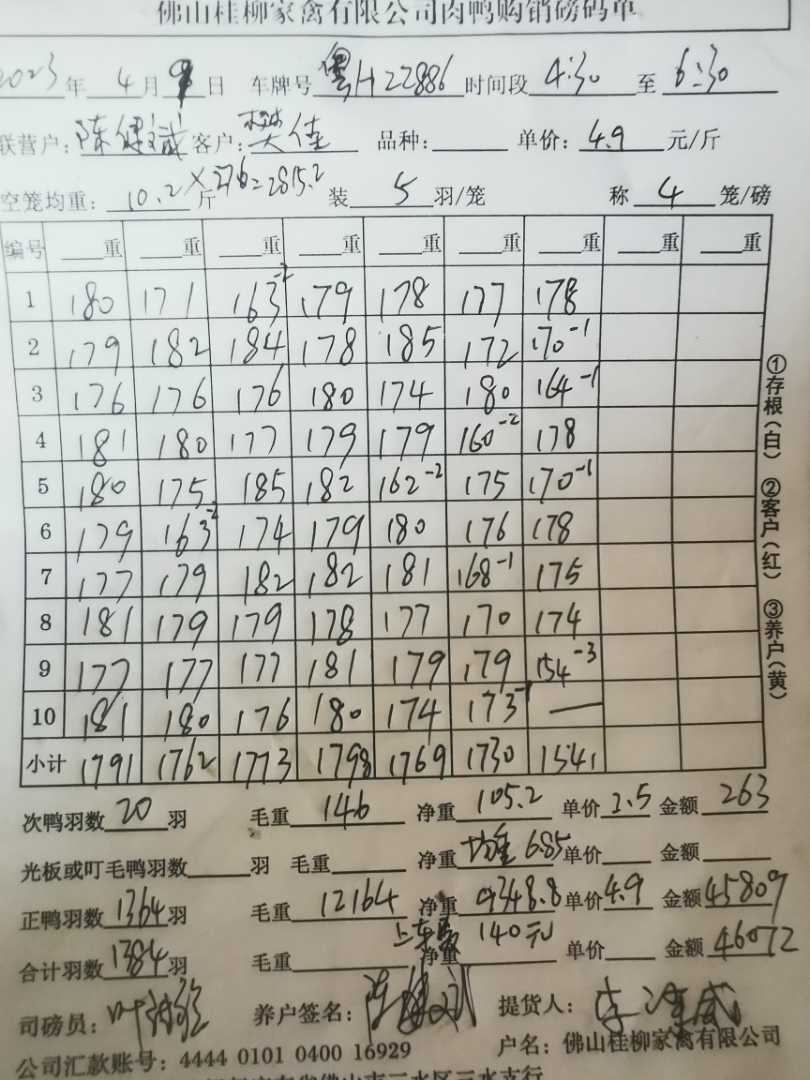 佛山桂柳家禽有限公司肉鸭购销磅码单
2023年 4月 9日 车牌号 粤H22886 时间段 4:30 至 6:30
联营户: 陈健斌 客户: 樊佳 品种: 单价: 4.9 元/斤
空笼均重: 10.2斤 ×276=2815.2 装 5 羽/笼 称 4 笼/磅
编号 重 重 重 重 重 重 重 重 重
1 180 171 163-2 179 178 177 178
2 179 182 184 178 185 172 170-1
3 176 176 176 180 174 180 164-1
4 181 180 177 179 179 160-2 178
5 180 175 185 182 162-2 175 170-1
6 179 163-2 174 179 180 176 178
7 177 179 182 182 181 168-1 175
8 181 179 179 178 177 170 174
9 177 177 177 181 179 179 154-3
10 181 180 176 180 174 173-1 —
小计 1791 1762 1773 1798 1769 1730 1541
①存根(白) ②客户(红) ③养户(黄)
次鸭羽数 20 羽 毛重 146 净重 105.2 单价 2.5 金额 263
光板或叮毛鸭羽数 羽 毛重 净重 均重 6.85 单价 金额
正鸭羽数 1364 羽 毛重 12164 净重 9348.8 单价 4.9 金额 45809
合计羽数 1384 羽 毛重 净重 上车费 140元 单价 金额 46072
司磅员: 养户签名: 陈健斌 提货人:
公司汇款账号: 4444 0101 0400 16929 户名: 佛山桂柳家禽有限公司